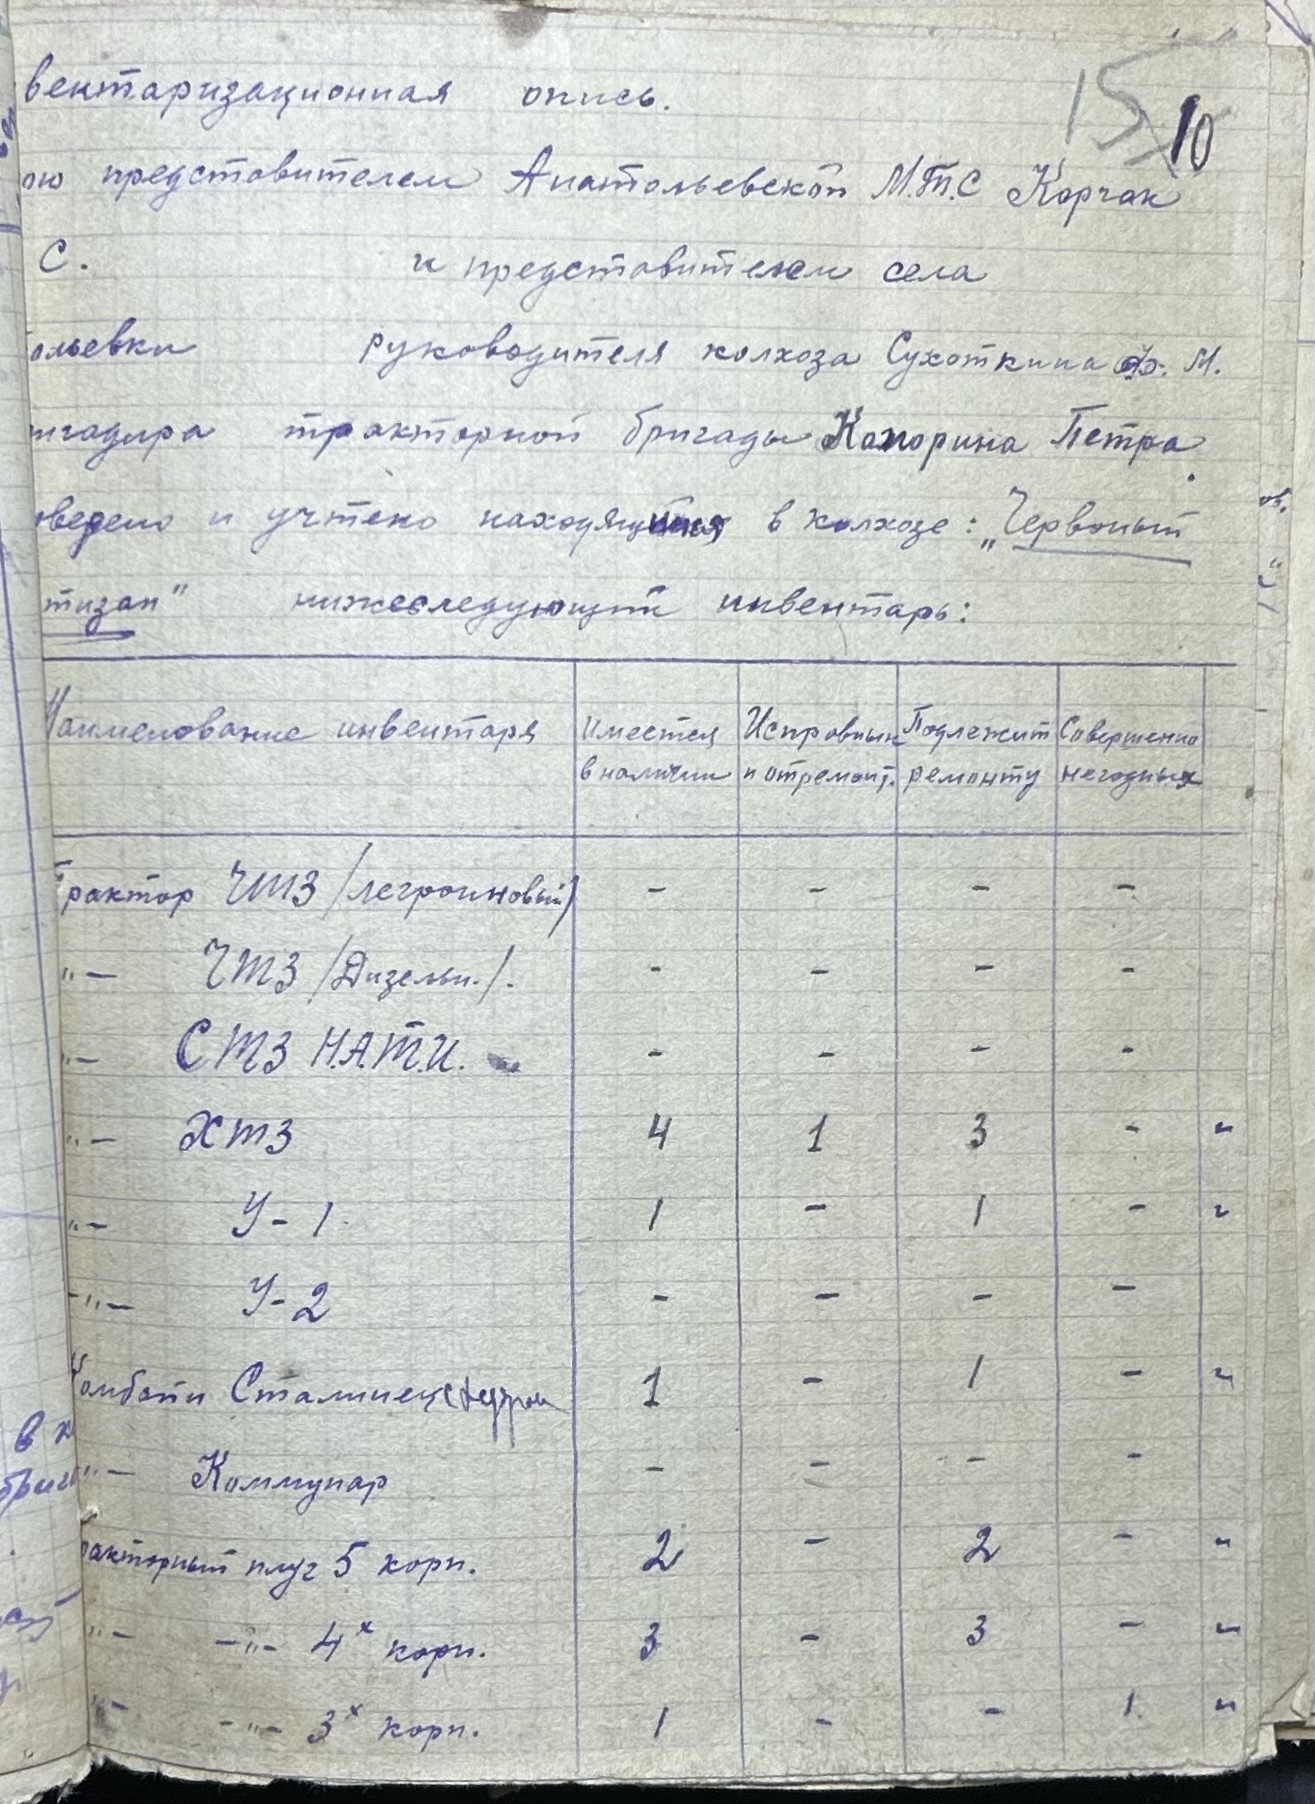 15 10
вентаризационная опись.
ою представителем Анатольевской М.Т.С Корчак
С. и представителем села
ольевки руководителя колхоза Сухоткина Ф. М.
игадира тракторной бригады Капорина Петра
оведено и учтено находящийся в колхозе: „Червоный
тизан" нижеследующий инвентарь:
Наименование инвентаря Имеется в наличии Исправных и отремонт. Подлежит ремонту Совершенно негодных
Трактор ЧТЗ /легроиновый/ - - - -
"- ЧТЗ /Дизельн./. - - - -
"- СТЗ Н.А.Т.И. - - - -
"- ХТЗ 4 1 3 - "
"- У-1 1 - 1 - "
-"- У-2 - - - -
Комбайн Сталинец 1 - 1 - "
"- Коммунар - - - -
ракторный плуг 5 корп. 2 - 2 - "
"- -"- 4х корп. 3 - 3 - "
"- -"- 3х корп. 1 - - 1 "